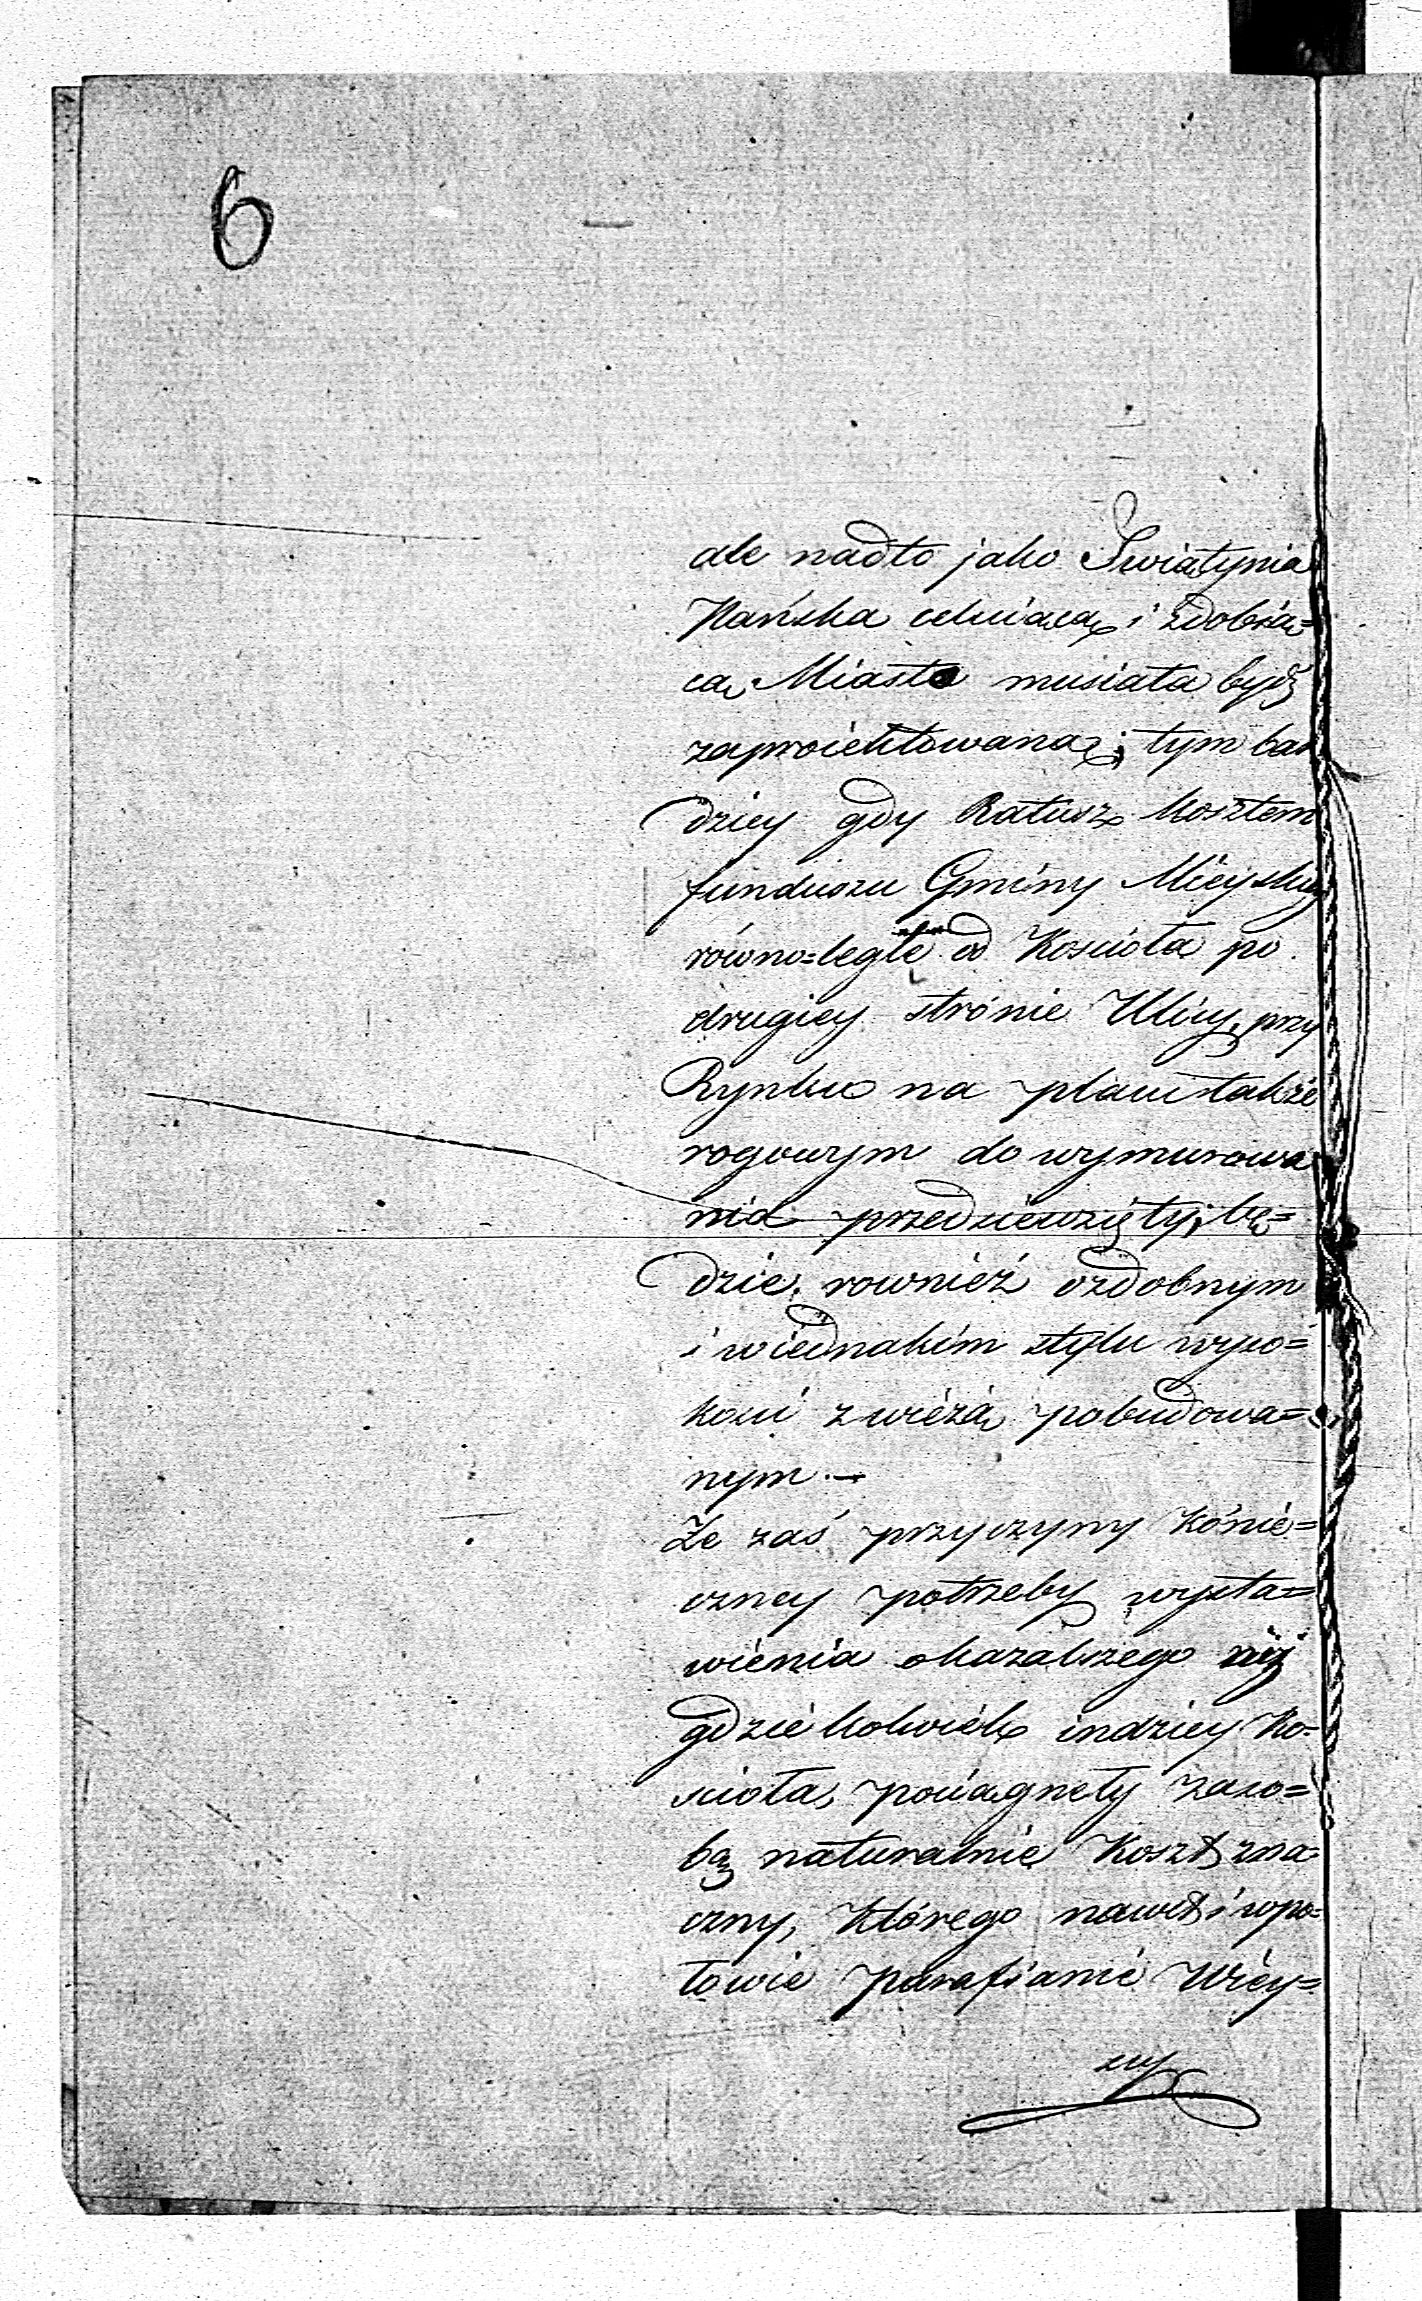 6
ale nadto jako Swiątynia
Pańska celuiąca i zdobią=
ca Miasto musiała bydź
zaproiektowaną; tym bar
dziey gdy Ratusz kosztem
funduszu Gminy Mieyskiey
równo=legle od Kościoła po
drugiey strónie Ulicy, przy
Rynku na placu także
rogowym do wymurowa
nia przedsiewzięty, bę=
dzie rownież ozdobnym
i wiednakim stylu wyso=
kosci z wieżą pobudowa=
nym. —
Ze zaś przyczyny kónie=
czney potrzeby wysta=
wienia okazalszego niż
gdzie kolwiek indziey Ko=
scioła, pociągnęły zaso=
bą naturalnie koszt zna=
czny, którego nawet i wpo=
łowie parafianie Wiey=
scy